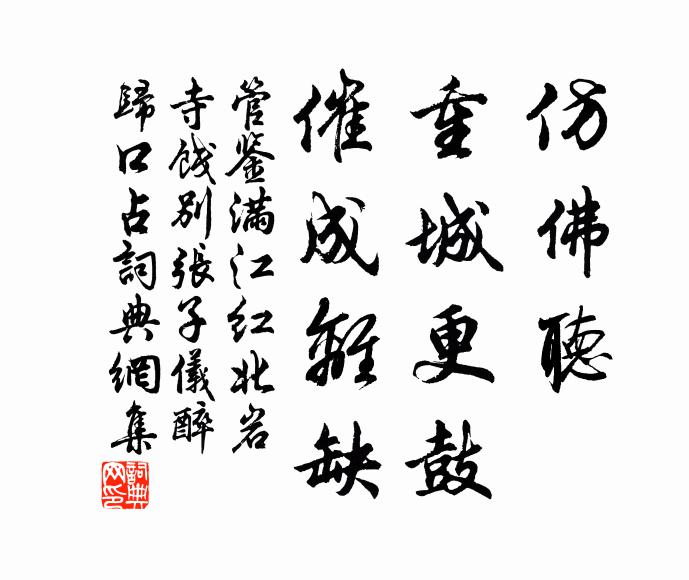 仿佛聽
重城更鼓
催成離缺
管鑒滿江红北岩
寺餞别張子儀醉
歸口占詞典網集
詞典网印